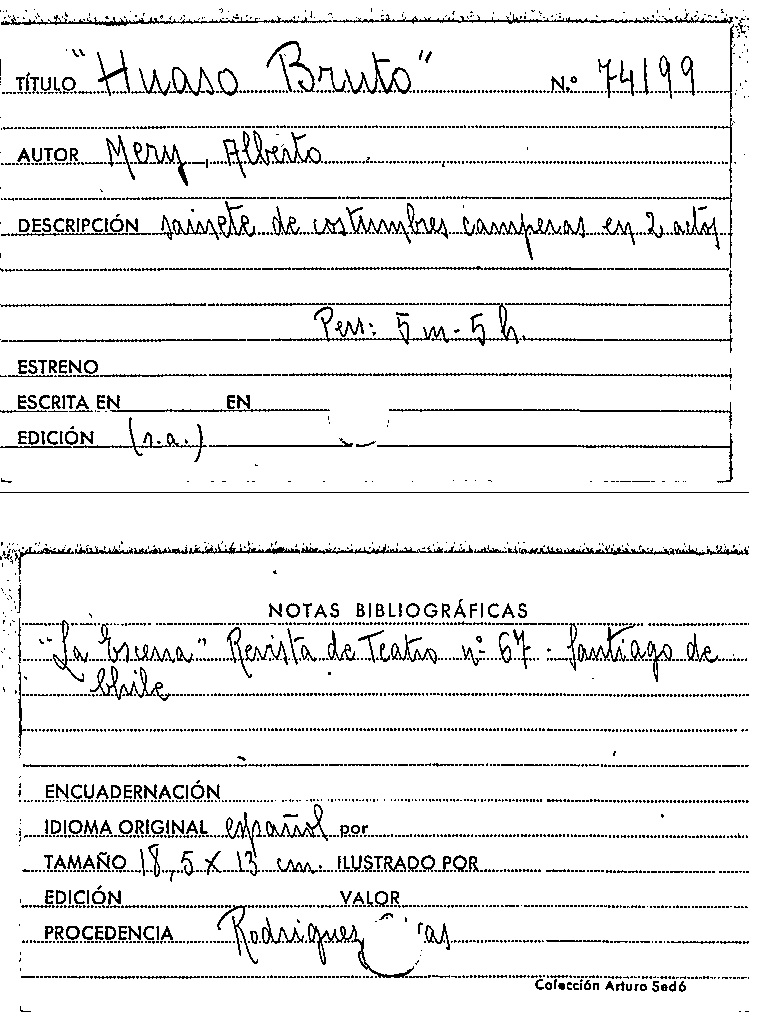 TÍTULO "Huaso Bruto" N.º 74199
AUTOR Mery, Alberto
DESCRIPCIÓN sainete de costumbres camperas en 2 actos
Pers: 5 m - 5 h.
ESTRENO
ESCRITA EN EN
EDICIÓN (s.a.)
NOTAS BIBLIOGRÁFICAS
"La Escena" Revista de Teatro nº 67 - Santiago de
Chile
ENCUADERNACIÓN
IDIOMA ORIGINAL español por
TAMAÑO 18,5 X 13 cm. ILUSTRADO POR
EDICIÓN VALOR
PROCEDENCIA Rodriguez
Colección Arturo Sedó